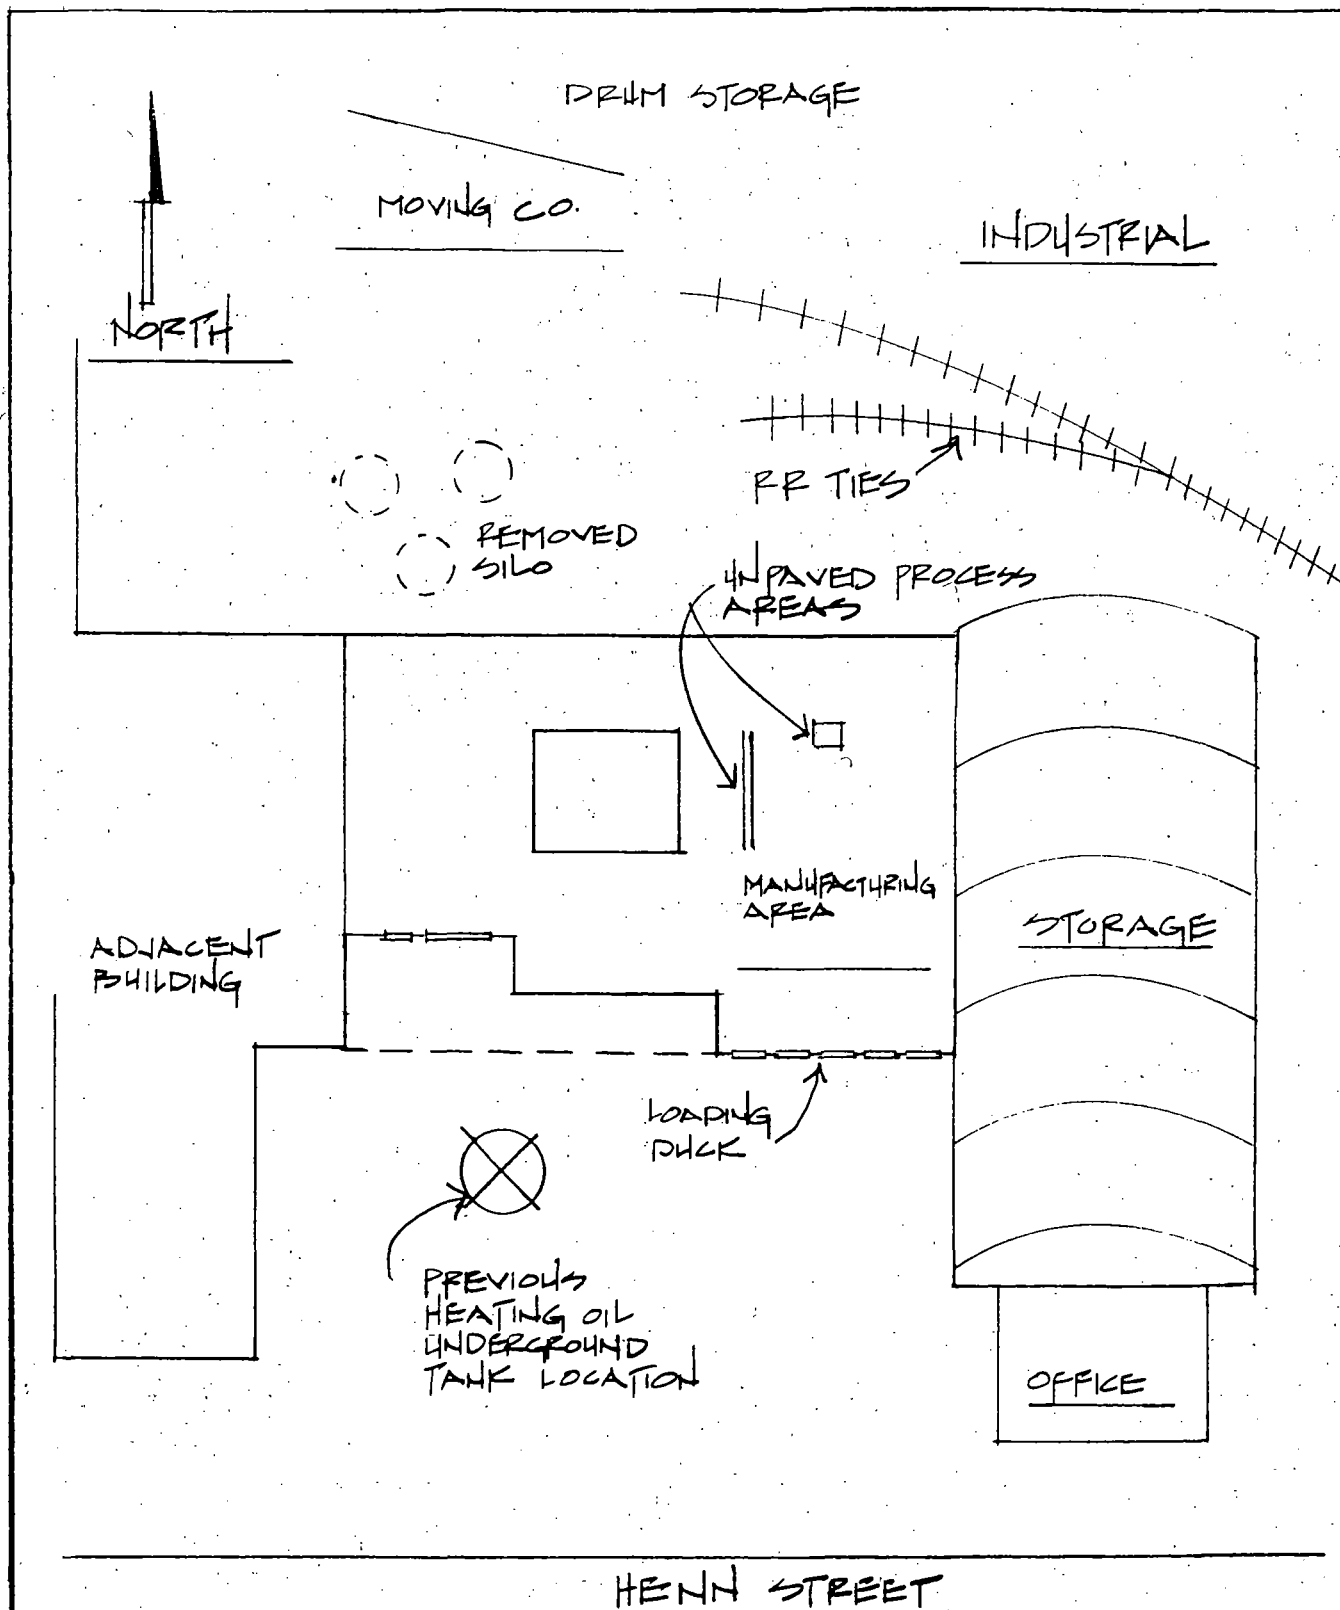 DRUM STORAGE
MOVING CO.
INDUSTRIAL
NORTH
RR TIES
REMOVED
SILO
UNPAVED PROCESS
AREAS
MANUFACTURING
AREA
STORAGE
ADJACENT
BUILDING
LOADING
DUCK
PREVIOUS
HEATING OIL
UNDERGROUND
TANK LOCATION
OFFICE
HENN STREET